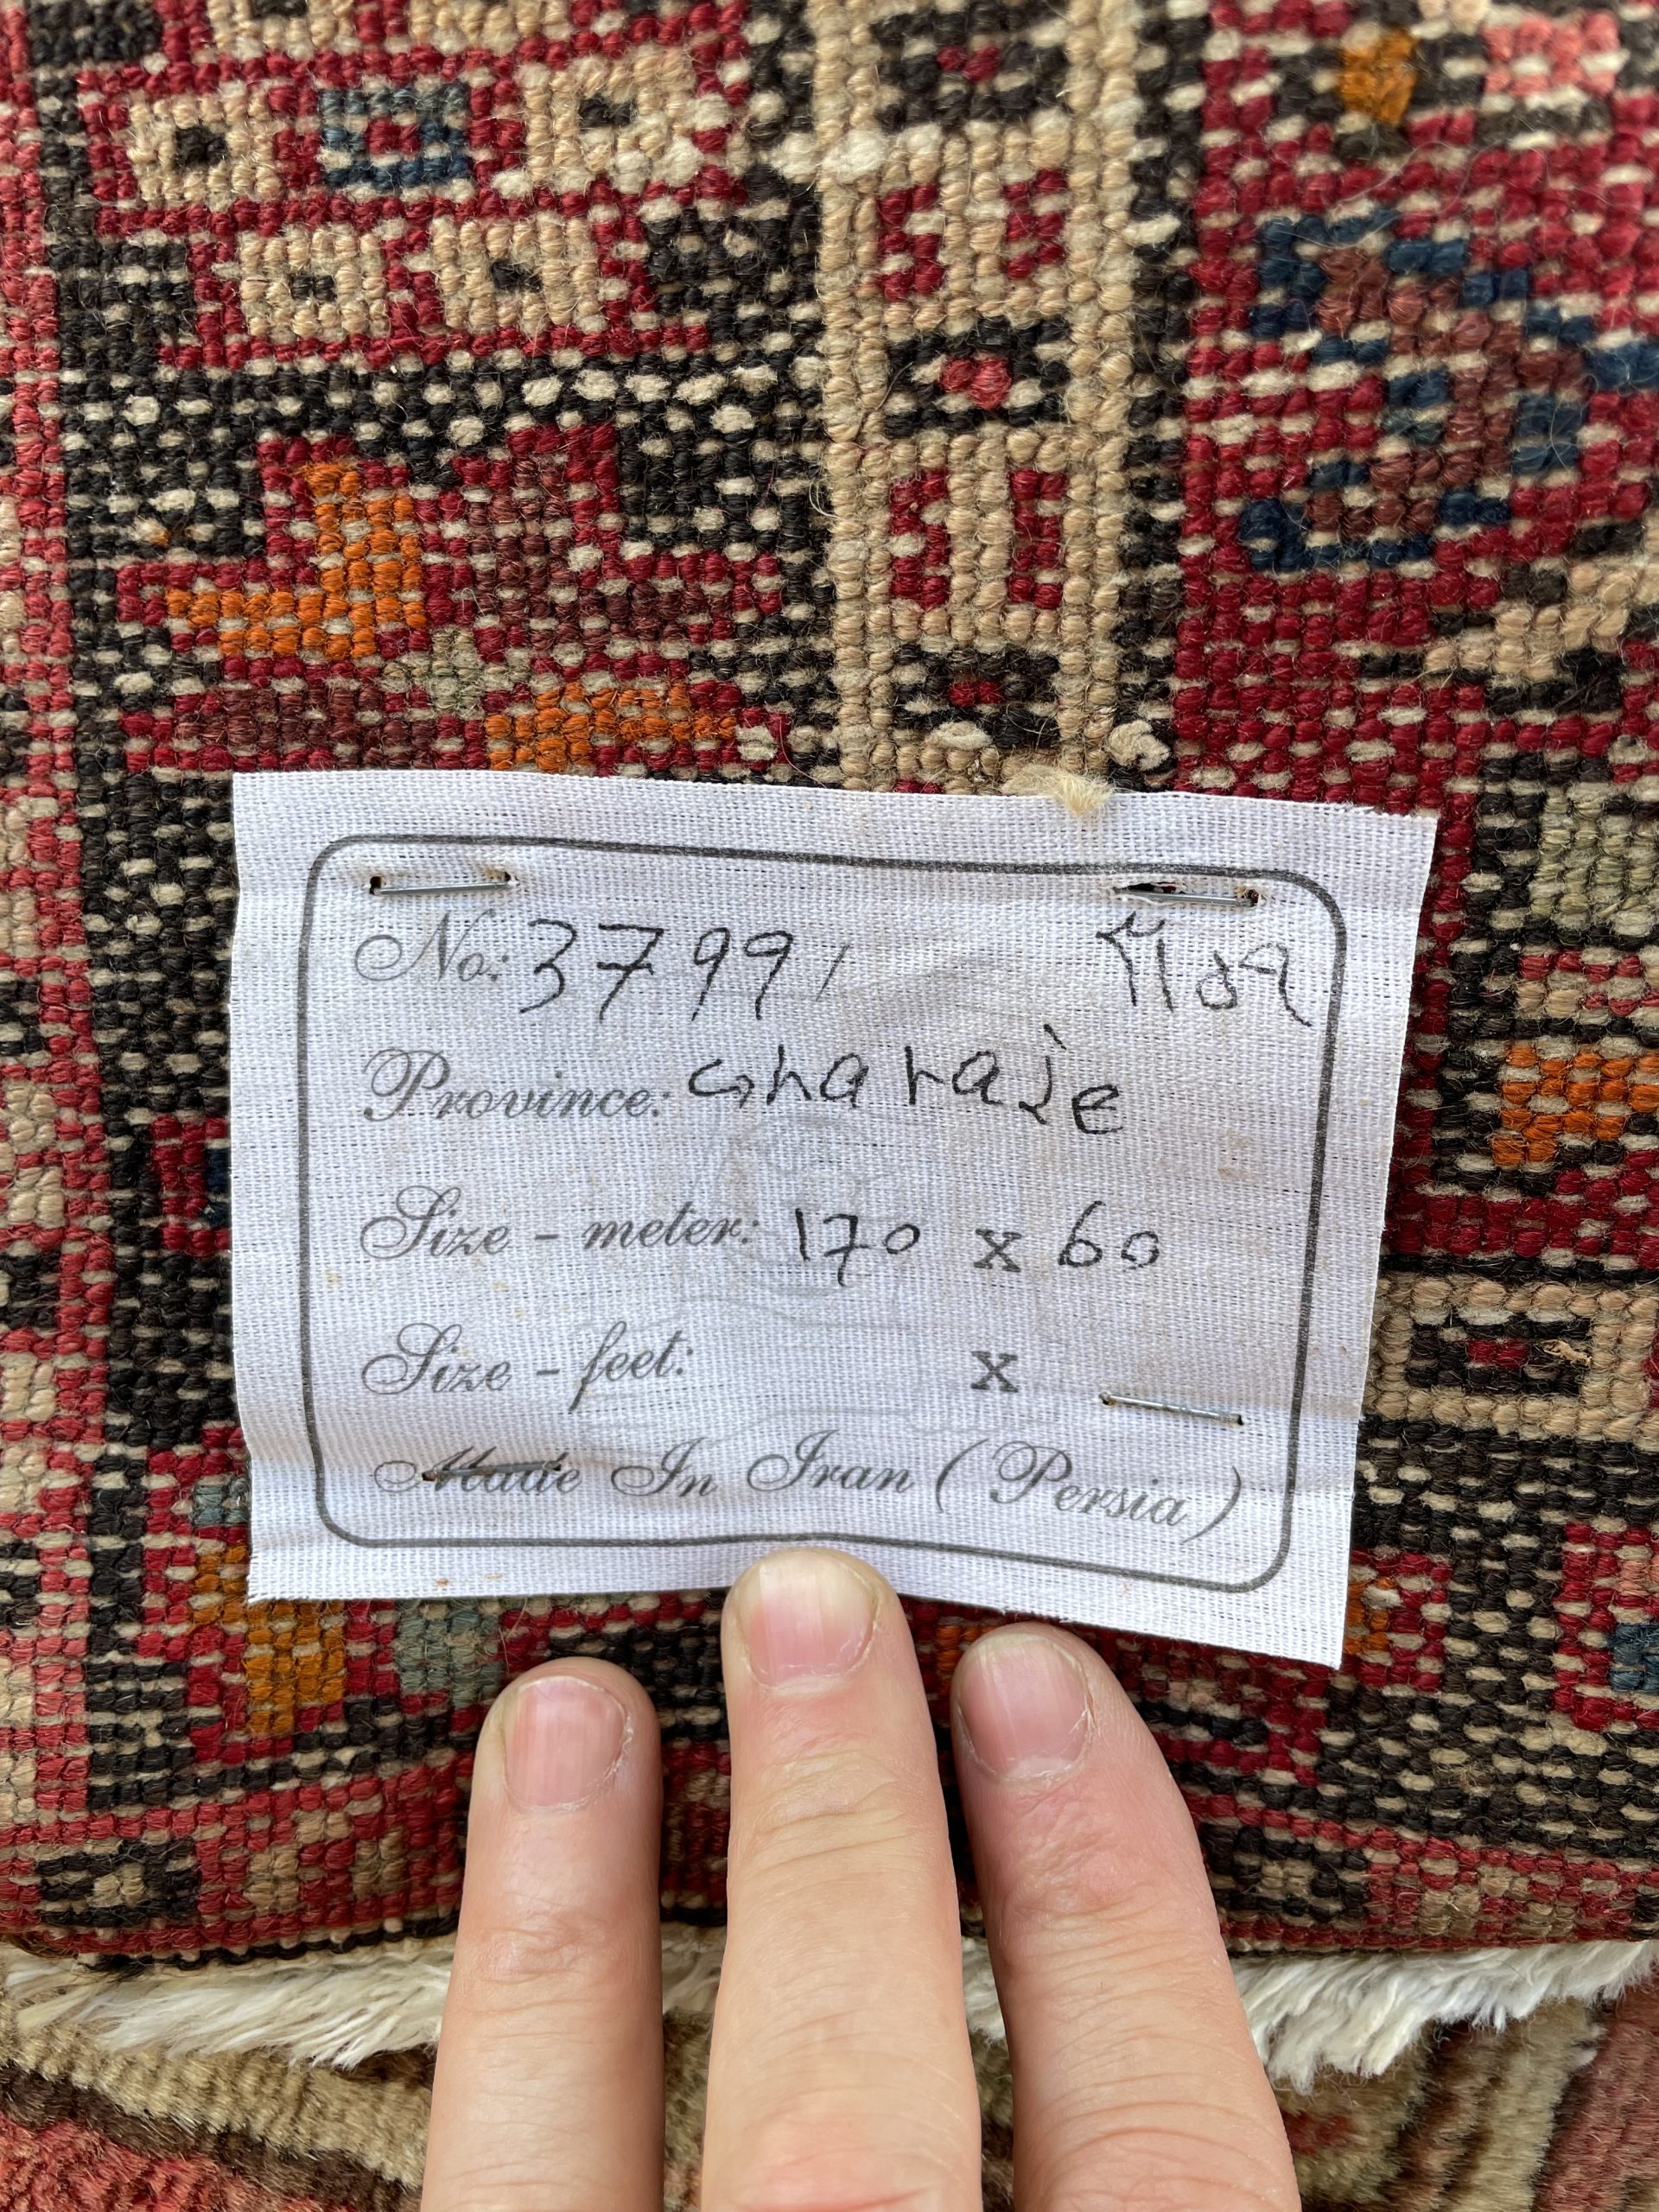 No: 3799/
Province: Gharaje
Size - meter: 170 x 60
Size - feet: x
Made In Iran (Persia)